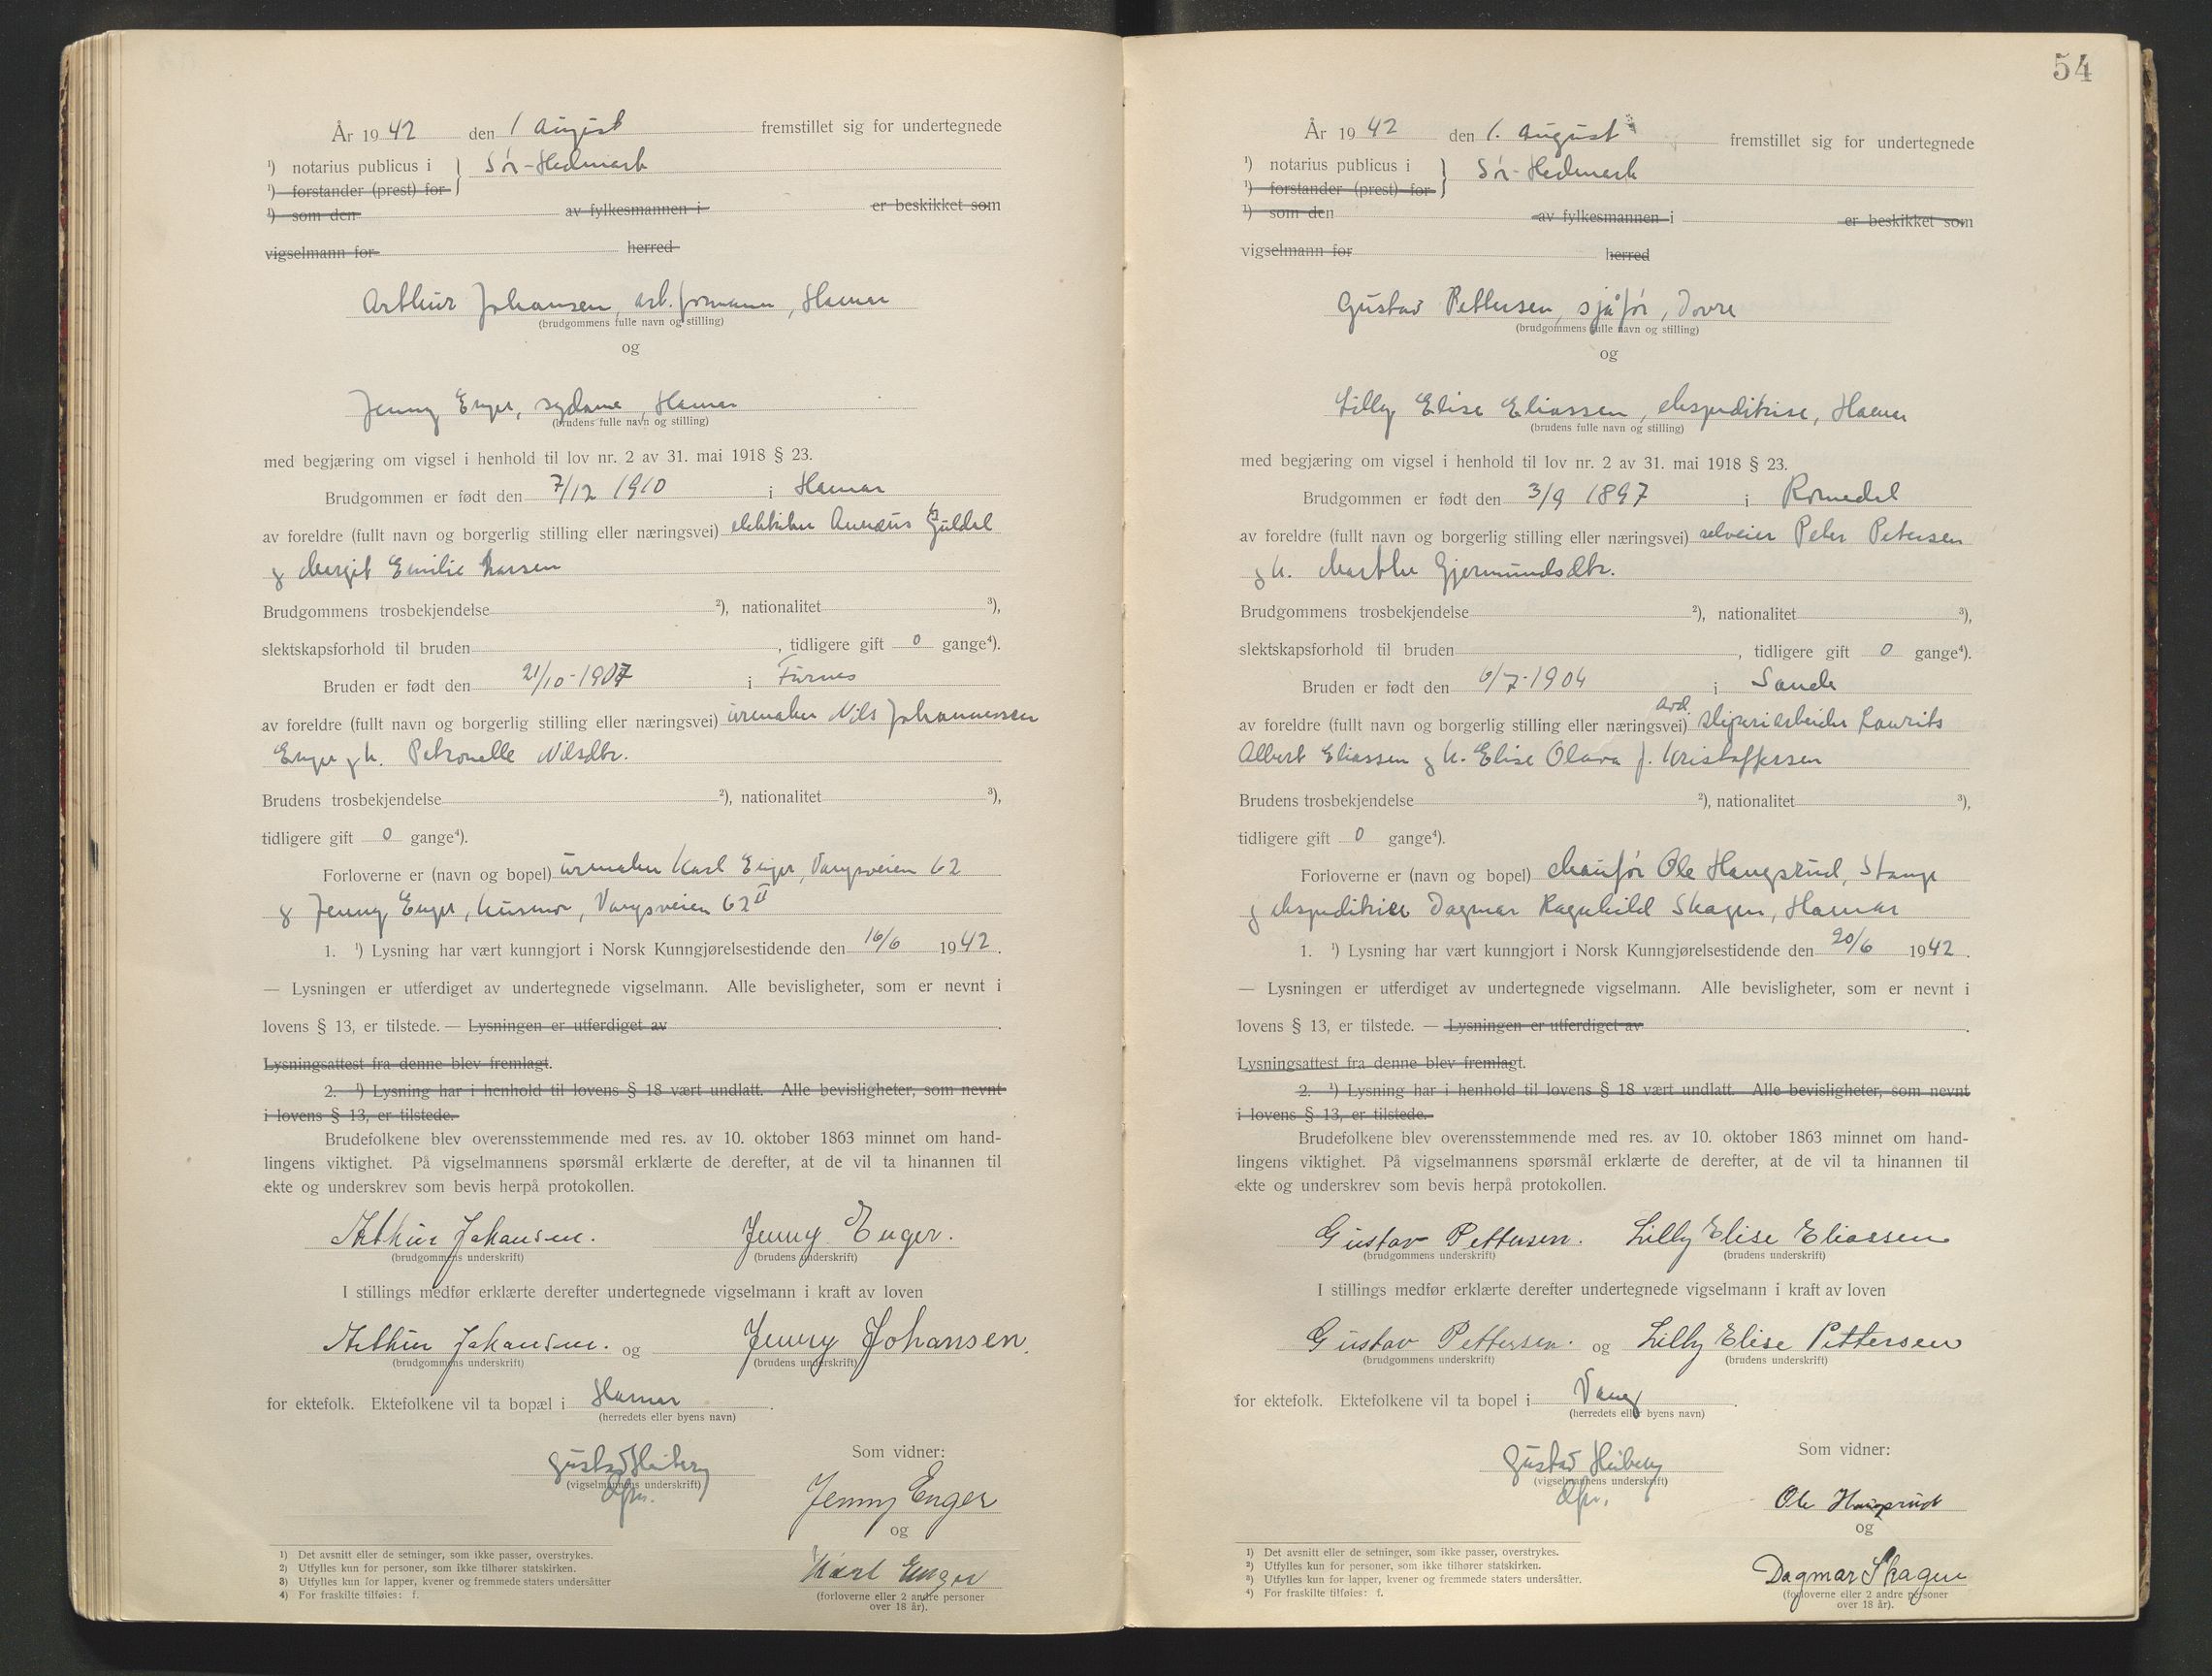 År 1942 den 1 August fremstillet sig for undertegnede
¹) notarius publicus i } Sør-Hedmark
¹) forstander (prest) for
¹) som den av fylkesmannen i er beskikket som
vigselmann for herred
Arthur Johansen, arb.formann, Hamar
(brudgommens fulle navn og stilling)
og
Jenny Enger, sydame, Hamar
(brudens fulle navn og stilling)
med begjæring om vigsel i henhold til lov nr. 2 av 31. mai 1918 § 23.
Brudgommen er født den 7/12 1910 i Hamar
av foreldre (fullt navn og borgerlig stilling eller næringsvei) elektriker Annæus Guldal
og Margit Emilie Larsen
Brudgommens trosbekjendelse ²), nationalitet ³),
slektskapsforhold til bruden , tidligere gift 0 gange⁴).
Bruden er født den 21/10-1907 i Furnes
av foreldre (fullt navn og borgerlig stilling eller næringsvei) urmaker Nils Johannessen
Enger og h. Petronelle Nilsdtr.
Brudens trosbekjendelse ²), nationalitet ³),
tidligere gift 0 gange⁴).
Forloverne er (navn og bopel) urmaker Karl Enger, Vangsveien 62
og Jenny Enger, husmor, Vangsveien 62 II
1. ¹) Lysning har vært kunngjort i Norsk Kunngjørelsestidende den 16/6 1942.
— Lysningen er utferdiget av undertegnede vigselmann. Alle bevisligheter, som er nevnt i
lovens § 13, er tilstede. — Lysningen er utferdiget av .
Lysningsattest fra denne blev fremlagt.
2. ¹) Lysning har i henhold til lovens § 18 vært undlatt. Alle bevisligheter, som nevnt
i lovens § 13, er tilstede.
Brudefolkene blev overensstemmende med res. av 10. oktober 1863 minnet om hand-
lingens viktighet. På vigselmannens spørsmål erklærte de derefter, at de vil ta hinannen til
ekte og underskrev som bevis herpå protokollen.
Arthur Johansen. Jenny Enger.
(brudgommens underskrift) (brudens underskrift)
I stillings medfør erklærte derefter undertegnede vigselmann i kraft av loven
Arthur Johansen. og Jenny Johansen.
(brudgommens underskrift) (brudens underskrift)
for ektefolk. Ektefolkene vil ta bopæl i Hamar .
(herredets eller byens navn)
Som vidner:
Gustav Heiberg
(vigselmannens underskrift)
Jenny Enger
og
Karl Enger
(forloverne eller 2 andre personer
over 18 år).
1) Det avsnitt eller de setninger, som ikke passer, overstrykes.
2) Utfylles kun for personer, som ikke tilhører statskirken.
3) Utfylles kun for lapper, kvener og fremmede staters undersåtter
4) For fraskilte tilføies: f.
54
År 1942 den 1. August fremstillet sig for undertegnede
¹) notarius publicus i } Sør-Hedmark
¹) forstander (prest) for
¹) som den av fylkesmannen i er beskikket som
vigselmann for herred
Gustav Pettersen, sjåfør, Dovre
(brudgommens fulle navn og stilling)
og
Lilly Elise Eliassen, ekspeditrise, Hamar
(brudens fulle navn og stilling)
med begjæring om vigsel i henhold til lov nr. 2 av 31. mai 1918 § 23.
Brudgommen er født den 3/9 1897 i Romedal
av foreldre (fullt navn og borgerlig stilling eller næringsvei) selveier Peter Petersen
og h. Marthe Gjermundsdtr.
Brudgommens trosbekjendelse ²), nationalitet ³),
slektskapsforhold til bruden , tidligere gift 0 gange⁴).
Bruden er født den 6/7-1904 i Sande
av foreldre (fullt navn og borgerlig stilling eller næringsvei) sliperiarbeider Laurits
Albert Eliassen og h. Elise Olava f. Kristoffersen
Brudens trosbekjendelse ²), nationalitet ³),
tidligere gift 0 gange⁴).
Forloverne er (navn og bopel) chaufør Ole Haugsrud, Stange
og ekspeditrise Dagmar Ragnhild Skagen, Hamar
1. ¹) Lysning har vært kunngjort i Norsk Kunngjørelsestidende den 20/6 1942.
— Lysningen er utferdiget av undertegnede vigselmann. Alle bevisligheter, som er nevnt i
lovens § 13, er tilstede. — Lysningen er utferdiget av .
Lysningsattest fra denne blev fremlagt.
2. ¹) Lysning har i henhold til lovens § 18 vært undlatt. Alle bevisligheter, som nevnt
i lovens § 13, er tilstede.
Brudefolkene blev overensstemmende med res. av 10. oktober 1863 minnet om hand-
lingens viktighet. På vigselmannens spørsmål erklærte de derefter, at de vil ta hinannen til
ekte og underskrev som bevis herpå protokollen.
Gustav Pettersen. Lilly Elise Eliassen
(brudgommens underskrift) (brudens underskrift)
I stillings medfør erklærte derefter undertegnede vigselmann i kraft av loven
Gustav Pettersen. og Lilly Elise Pettersen
(brudgommens underskrift) (brudens underskrift)
for ektefolk. Ektefolkene vil ta bopel i Vang .
(herredets eller byens navn)
Som vidner:
Gustav Heiberg
(vigselmannens underskrift)
Ole Haugsrud
og
Dagmar Skagen
(forloverne eller 2 andre personer
over 18 år).
¹) Det avsnitt eller de setninger, som ikke passer, overstrykes.
²) Utfylles kun for personer, som ikke tilhører statskirken.
³) Utfylles kun for lapper, kvener og fremmede staters undersåtter.
⁴) For fraskilte tilføies: f.